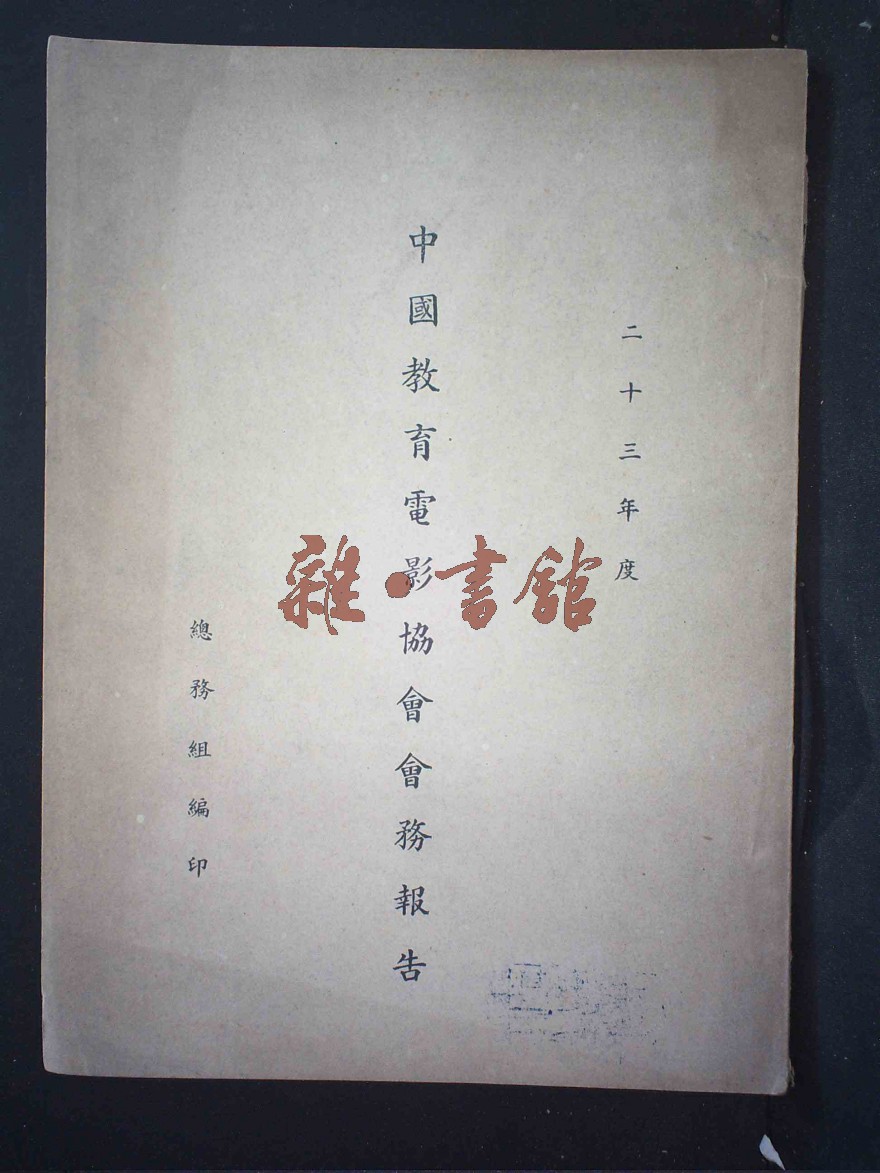 二十三年度
中國教育電影協會會務報告
總務組編印
雜·書館